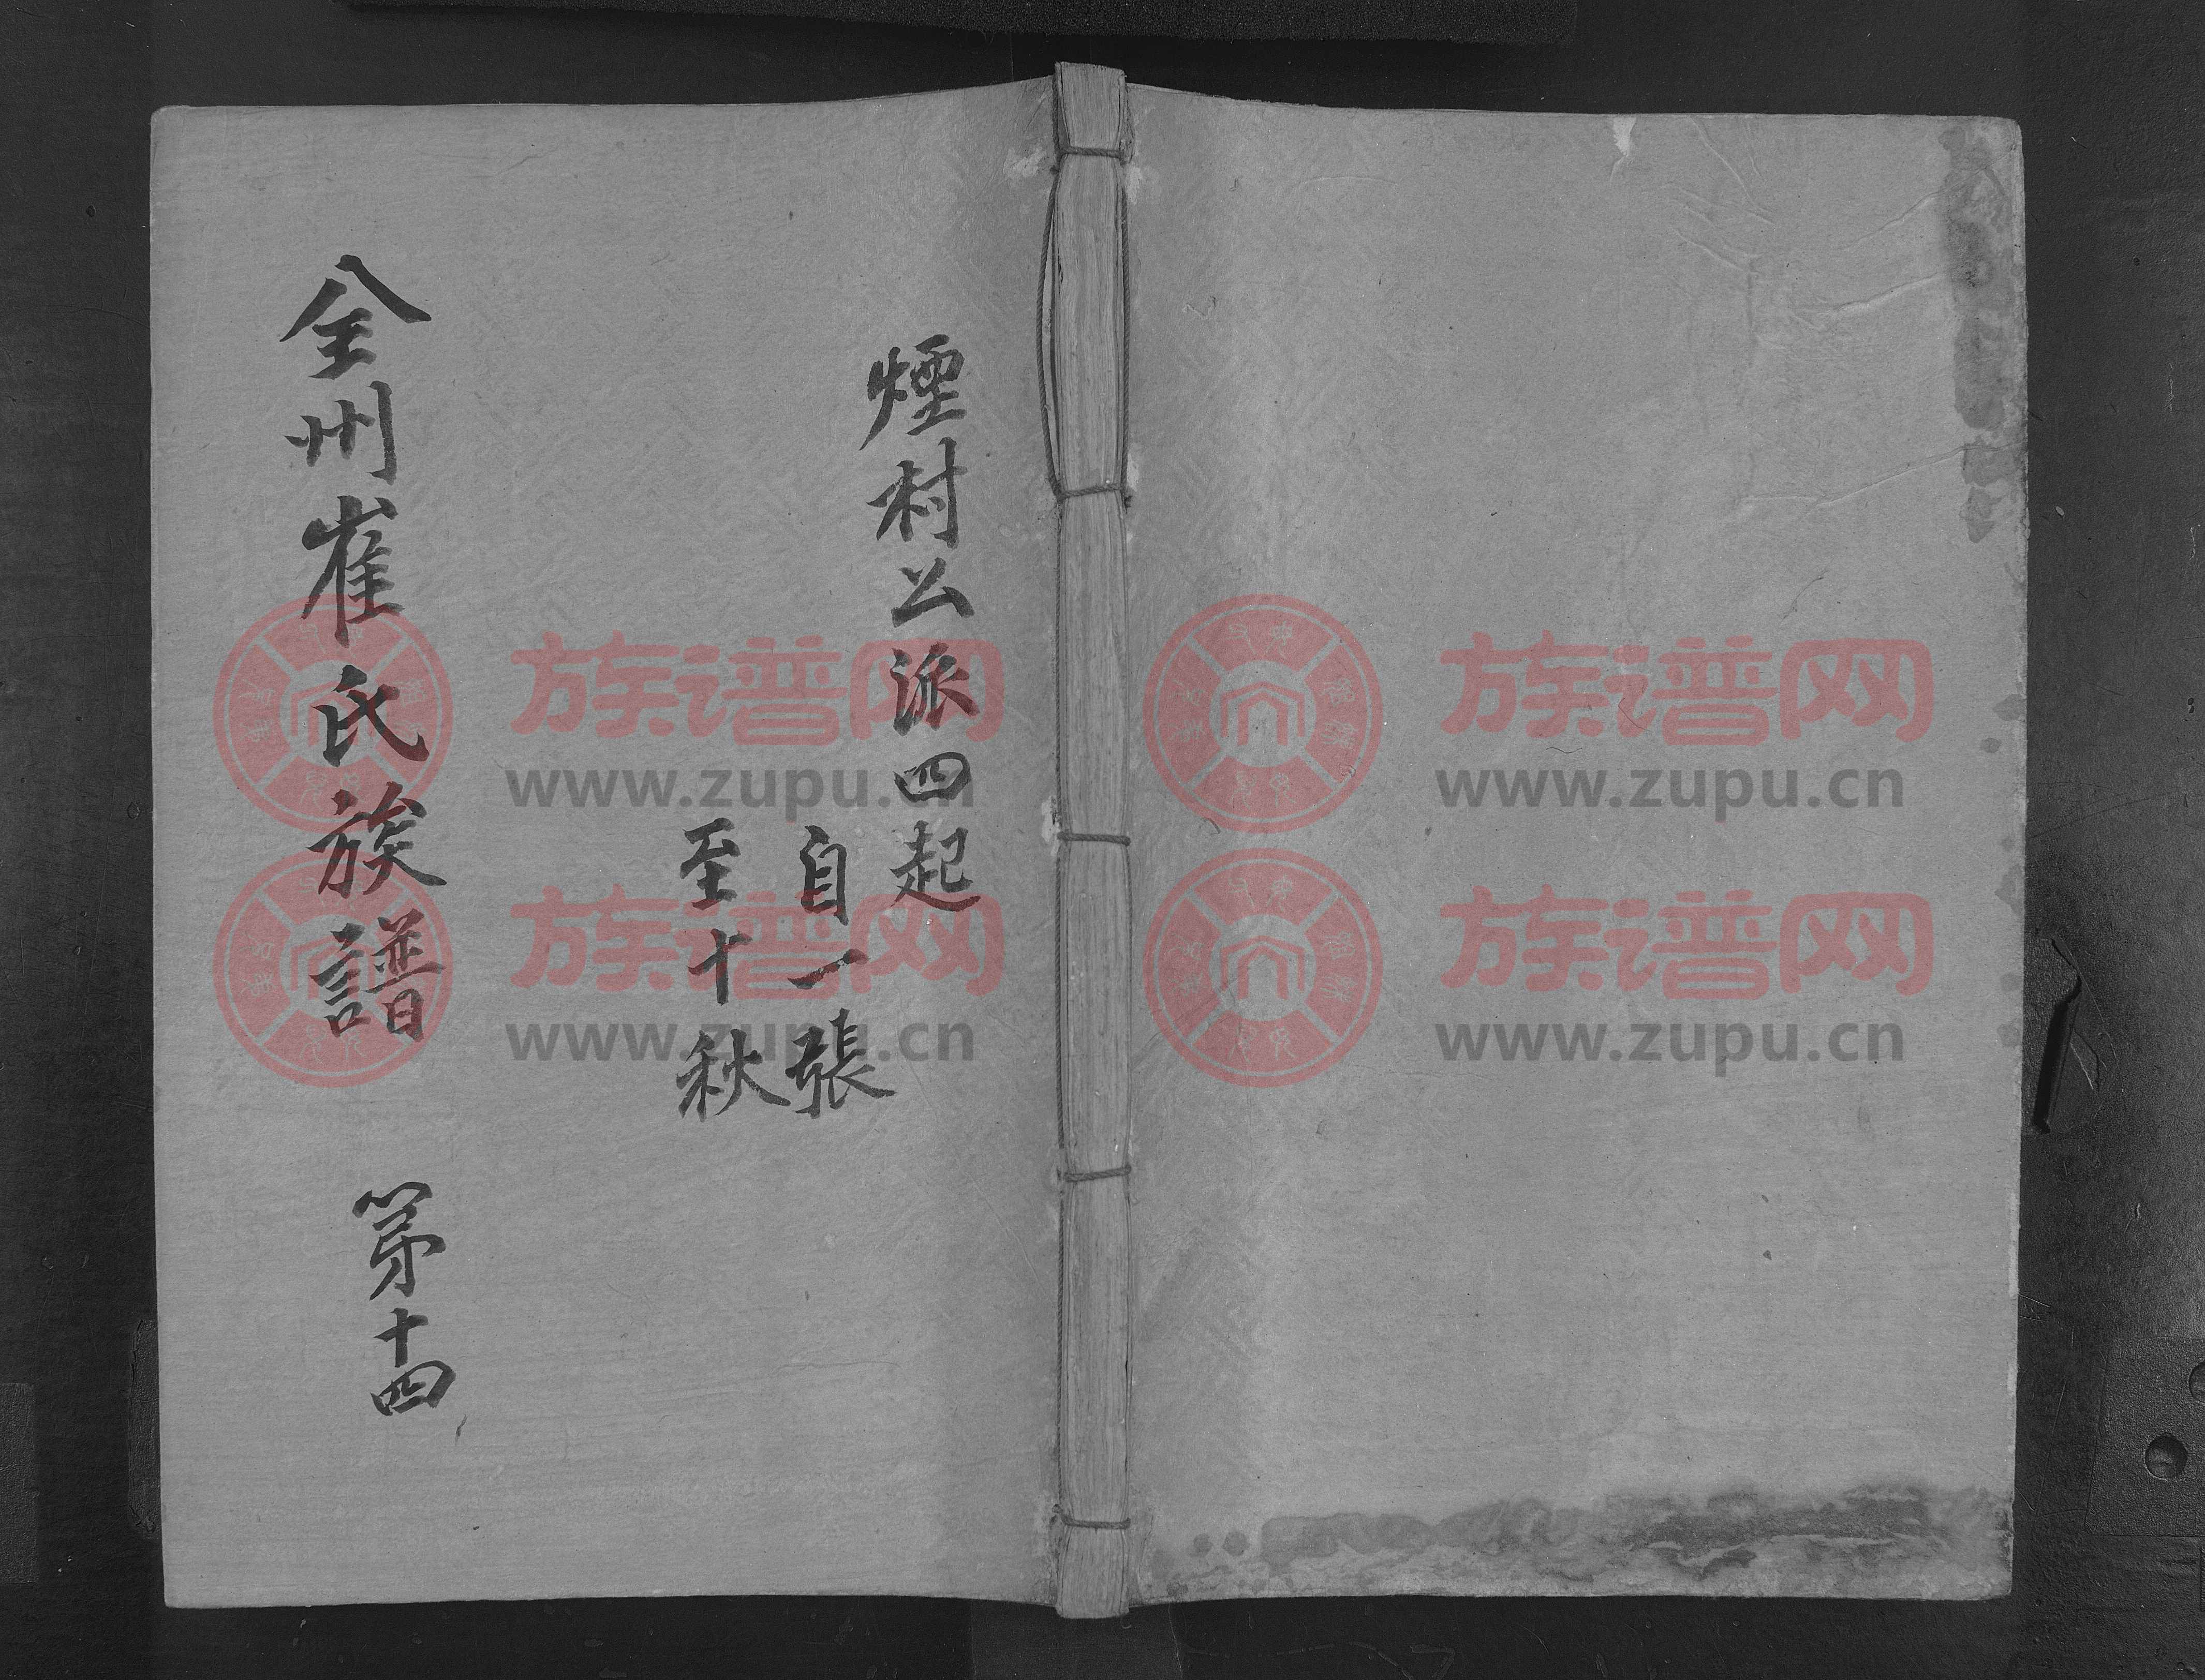 煙村公派四起
自一張
至十秋
全州崔氏族譜 第十四
族谱网
www.zupu.cn
族谱网
www.zupu.cn
族谱网
www.zupu.cn
族谱网
www.zupu.cn